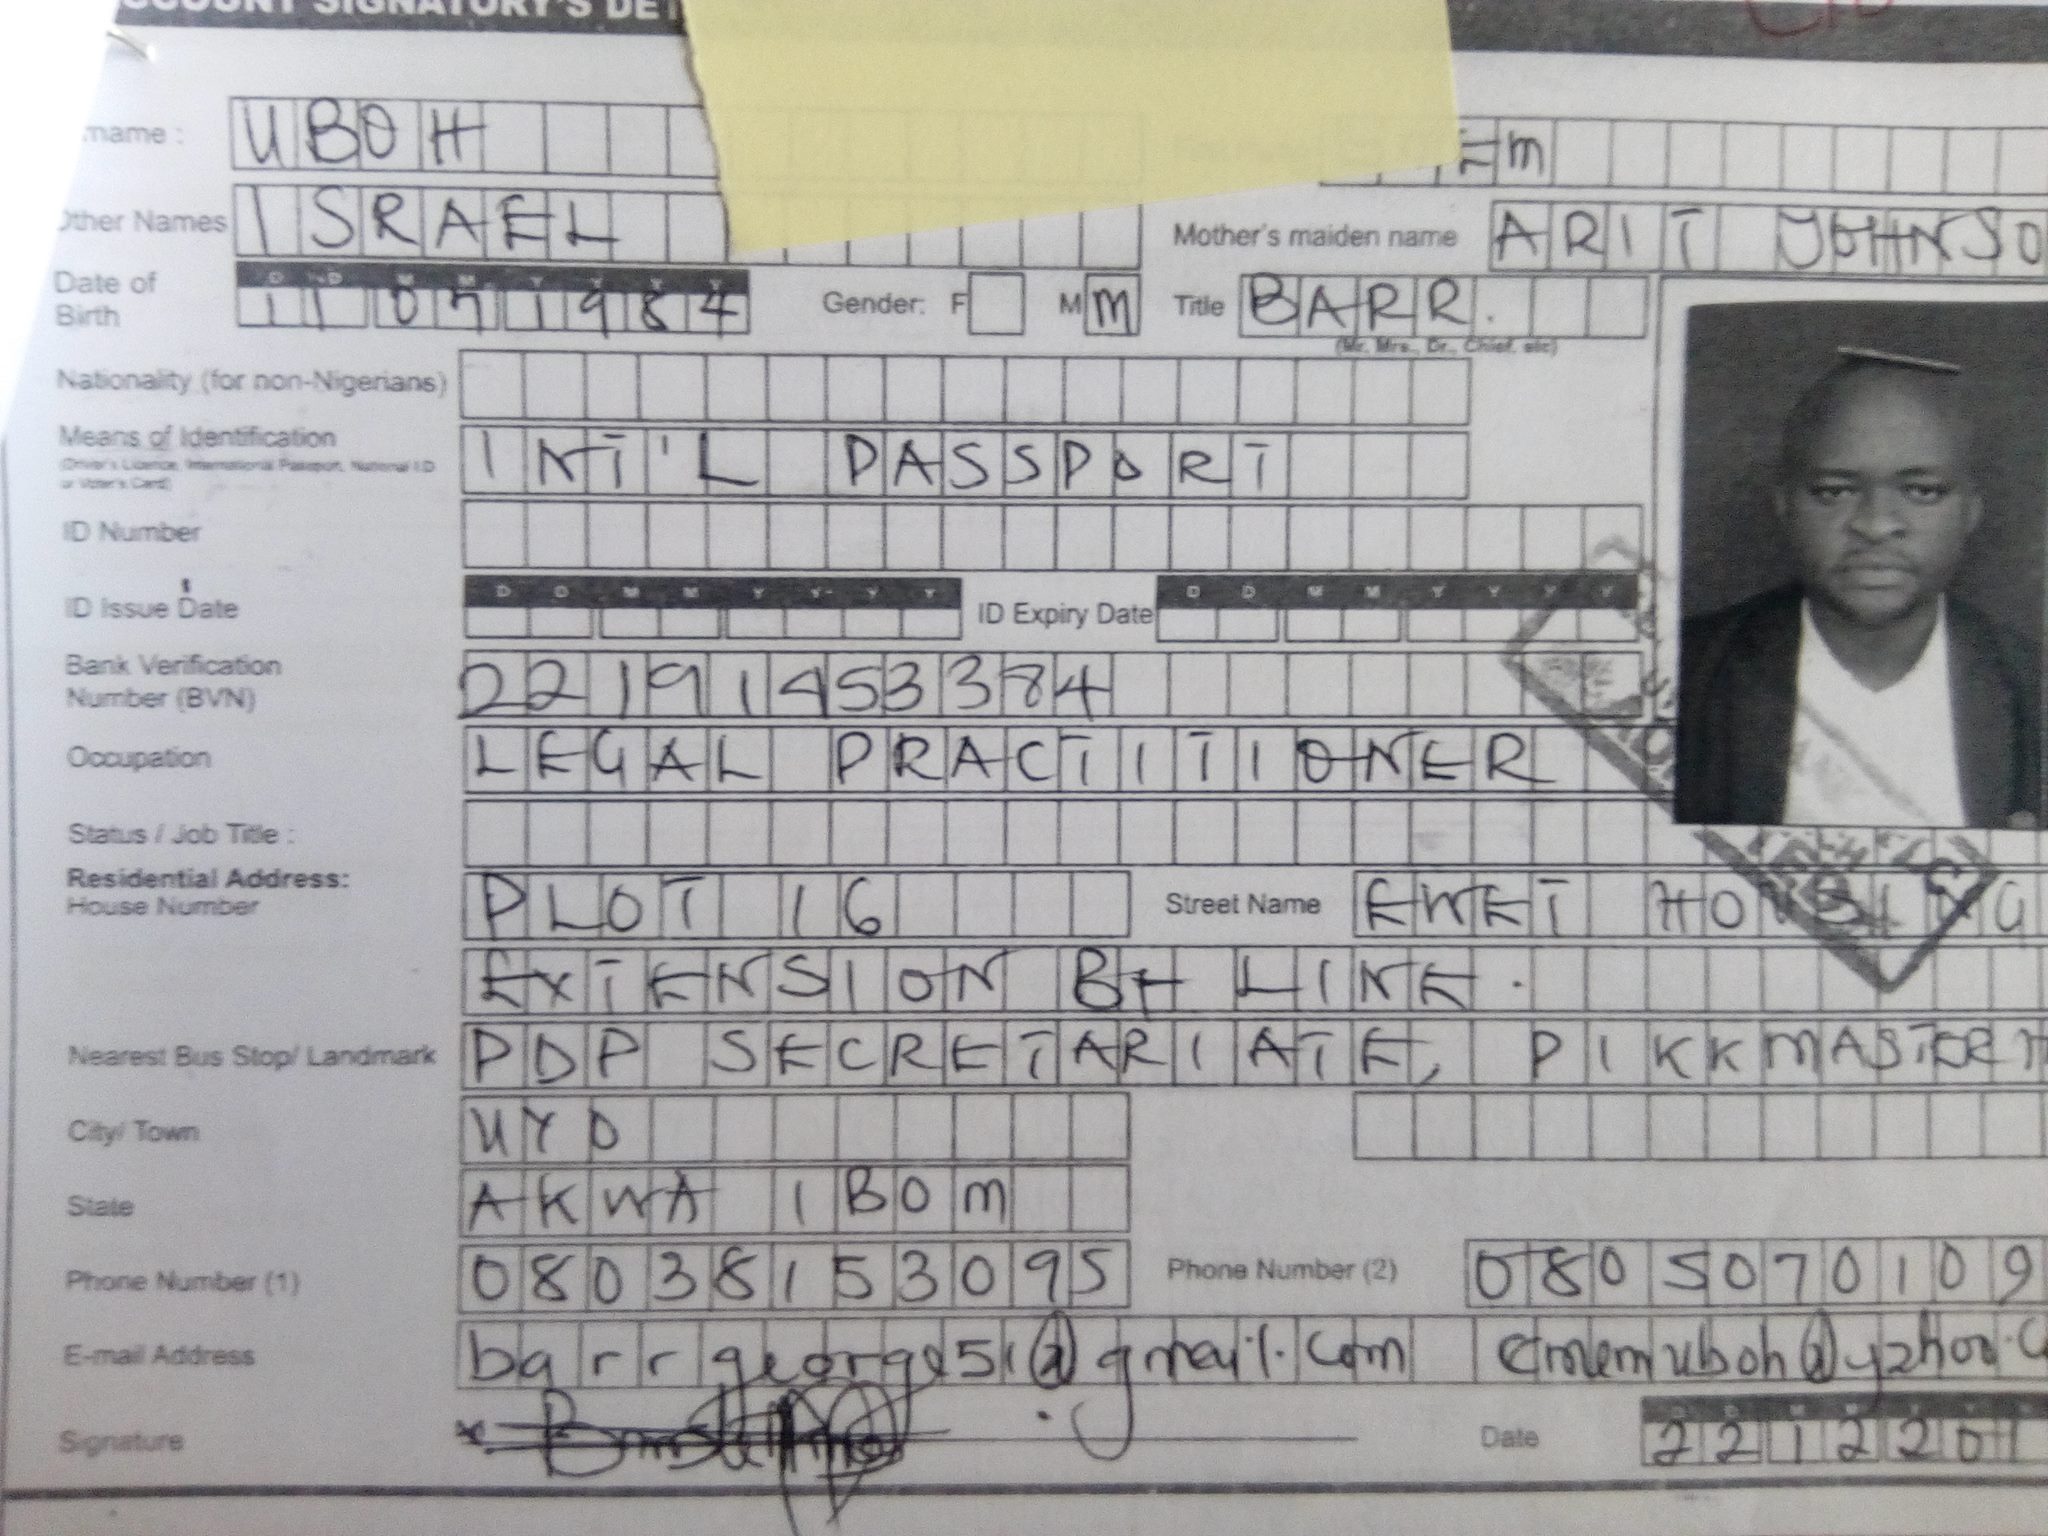 COUNT SIGNATORY'S DET
name : UBOH EM
Other Names ISRAEL Mother's maiden name ARIT JOHNSO
D D M M Y Y Y Y
Date of Birth 11 07 1984 Gender: F M M Title BARR.
(Mr, Mrs., Dr., Chief, etc)
Nationality (for non-Nigerians)
Means of Identification INT'L PASSPORT
(Driver's Licence, International Passport, National I.D
or Voter's Card)
ID Number
D D M M Y Y Y Y D D M M Y Y Y Y
ID Issue Date ID Expiry Date
Bank Verification
Number (BVN) 22191453384
Occupation LEGAL PRACTITIONER
Status / Job Title :
Residential Address:
House Number PLOT 16 Street Name EWET HOUSING
EXTENSION LINE.
Nearest Bus Stop/ Landmark PDP SECRETARIATE, PIKKMASTER
City/ Town UYO
State AKWA IBOM
Phone Number (1) 08038153095 Phone Number (2) 0805070109
E-mail Address barrgeorge51@gmail.com
Signature Date 2212201